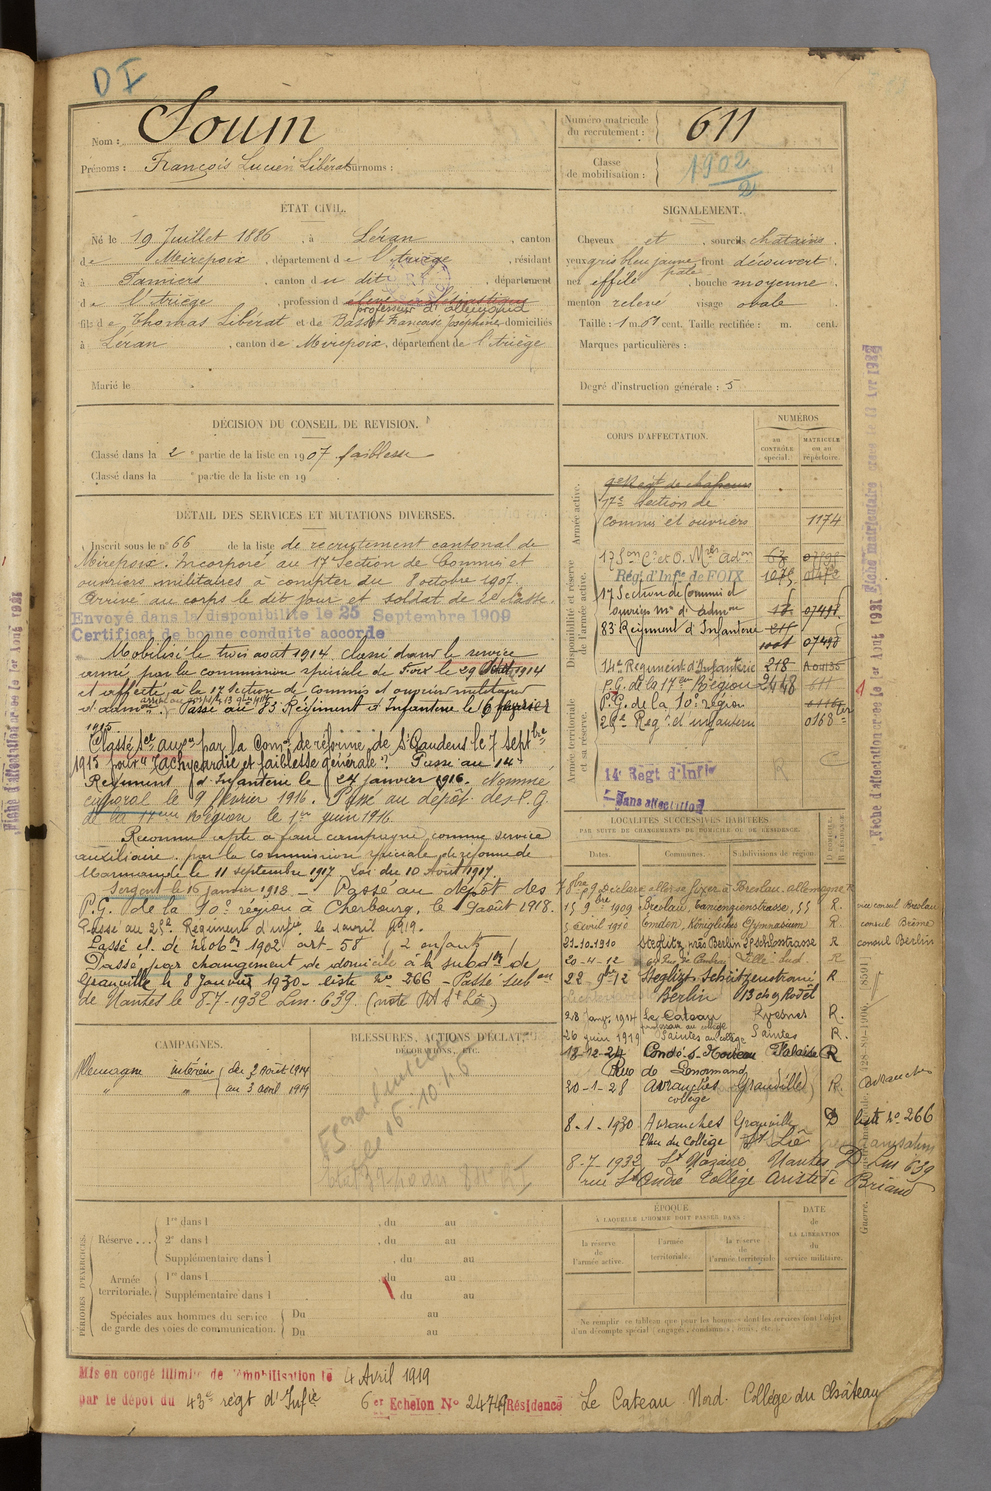 D I
Nom : Soum
Prénoms : François Lucien Libérat Surnoms :
Numéro matricule du recrutement : 611
Classe de mobilisation : 1902
ÉTAT CIVIL.
Né le 19 Juillet 1886, à Léran, canton
de Mirepoix, département de l'Ariège, résidant
à Pamiers, canton du dit, département
de l'Ariège, profession d
professeur d'allemand
fils de Thomas Libérat et de Françoise Joséphine domiciliés
à Léran, canton de Mirepoix, département de l'Ariège
Marié le
SIGNALEMENT.
Cheveux et sourcils chatains.
yeux gris bleu jaune pale, front découvert.
nez effilé, bouche moyenne.
menton relevé visage ovale.
Taille : 1 m. 61 cent. Taille rectifiée : m. cent.
Marques particulières :
Degré d'instruction générale : 5
DÉCISION DU CONSEIL DE REVISION.
Classé dans la 2e partie de la liste en 1907 faiblesse
Classé dans la e partie de la liste en 19
DÉTAIL DES SERVICES ET MUTATIONS DIVERSES.
Inscrit sous le n° 66 de la liste de recrutement cantonal de
Mirepoix. Incorporé au 17e Section de Commis et
ouvriers militaires à compter du 8 octobre 1907.
Arrivé au corps le dit jour et soldat de 2e classe.
Envoyé dans la disponibilité le 25 Septembre 1909
Certificat de bonne conduite accordé
Mobilisé le trois août 1914. Classé dans le service
armé par la commission spéciale de Foix le 29 1914
et affecté à la 17 Section de commis et ouvriers militaires
d'admon. Passé au 83 Régiment d'Infanterie le 16 février
1915
Classé Sce auxre par la Comon de réforme de St Gaudens le 7 septbre
1915 pour "Tachycardie et faiblesse générale". Passé au 14e
Régiment d'Infanterie le 24 janvier 1916. Nommé
caporal le 9 février 1916. Passé au dépôt des P.G.
de la 17eme Région le 1er juin 1916.
Reconnu apte à faire campagne comme service
auxiliaire par la commission spéciale de réforme de
Marmande le 11 septembre 1917 Loi du 10 Août 1917.
Sergent le 15 janvier 1918 – Passé au dépôt des
P.G. de la 10e région à Cherbourg, le 9 août 1918.
Passé au 25e Régiment d'Infie le 1 avril 1919.
Passé cl. de mob on 1902 art. 58 (2 enfants)
Passé par changement de domicile à la subdon de
Granville le 8 Janvier 1930 – liste N° 266 – Passé subon
de Nantes le 8-7-1932 Lm. 639.
CORPS D'AFFECTATION.
NUMÉROS
au CONTRÔLE spécial.
MATRICULE ou au répertoire.
Armée active.
17e Section de
commis et ouvriers 1174
Disponibilité et réserve de l'armée active.
17 Son C. et O. Mres Adon
Régt d'Infie de FOIX
17 Section de Commis et
ouvriers Mres d'admon
83 Régiment d'Infanterie
14e Régiment d'Infanterie 218
P.G. de la 17eme Région 2448
P.G. de la 10e région
25e Régt d'infanterie 0168
Armée territoriale et sa réserve.
14e Régt d'Infie
Sans affectation
R
LOCALITÉS SUCCESSIVES HABITÉES
PAR SUITE DE CHANGEMENTS DE DOMICILE OU DE RÉSIDENCE.
Dates. Communes. Subdivisions de région. D. DOMICILE. R. RÉSIDENCE.
Déclare aller se fixer à Breslau. allemagne R
15 9bre 1909 Breslau, Tauenzienstrasse, 55 R. vice consul Breslau
5 avril 1910 Emden, Königliches Gymnasium R. consul Brême
21-10-1910 Steglitz près Berlin Schlosstrasse R consul Berlin
20-4-12 Lille Sud R
22 9bre 12 Steglitz Schützenstrasse R
Berlin
28 Janv. 1914 Le Cateau Avesnes R.
professeur au collège
26 juin 1919 Saintes au collège Saintes R.
12-12-24 Condé s. Noireau Falaise R
20-1-28 Avranches Granville R. Avranches
collège
8-1-1930 Avranches Granville D liste N° 266
Place du Collège St Lô
8-7-1932 St Nazaire Nantes D Lm 639
rue St André Collège Aristide Briand
CAMPAGNES.
Allemagne intérieur du 2 Août 1914
" " au 3 avril 1919
BLESSURES, ACTIONS D'ÉCLAT, DÉCORATIONS, ETC.
PÉRIODES D'EXERCICES.
Réserve... 1re dans l , du au
2e dans l , du au
Supplémentaire dans l , du au
Armée territoriale. 1re dans l , du au
Supplémentaire dans l , du au
Spéciales aux hommes du service de garde des voies de communication. Du au
Du au
ÉPOQUE
A LAQUELLE L'HOMME DOIT PASSER DANS :
la réserve de l'armée active.
l'armée territoriale.
la réserve de l'armée territoriale
DATE de LA LIBÉRATION du service militaire.
Ne remplir ce tableau que pour les hommes dont les services font l'objet d'un décompte spécial (engagés, condamnés, omis, etc.)
Mis en congé illimité de démobilisation le 4 Avril 1919
par le dépôt du 43e régt d'Infie 6 et Echelon N° 24749 Résidence Le Cateau Nord. Collège du Château